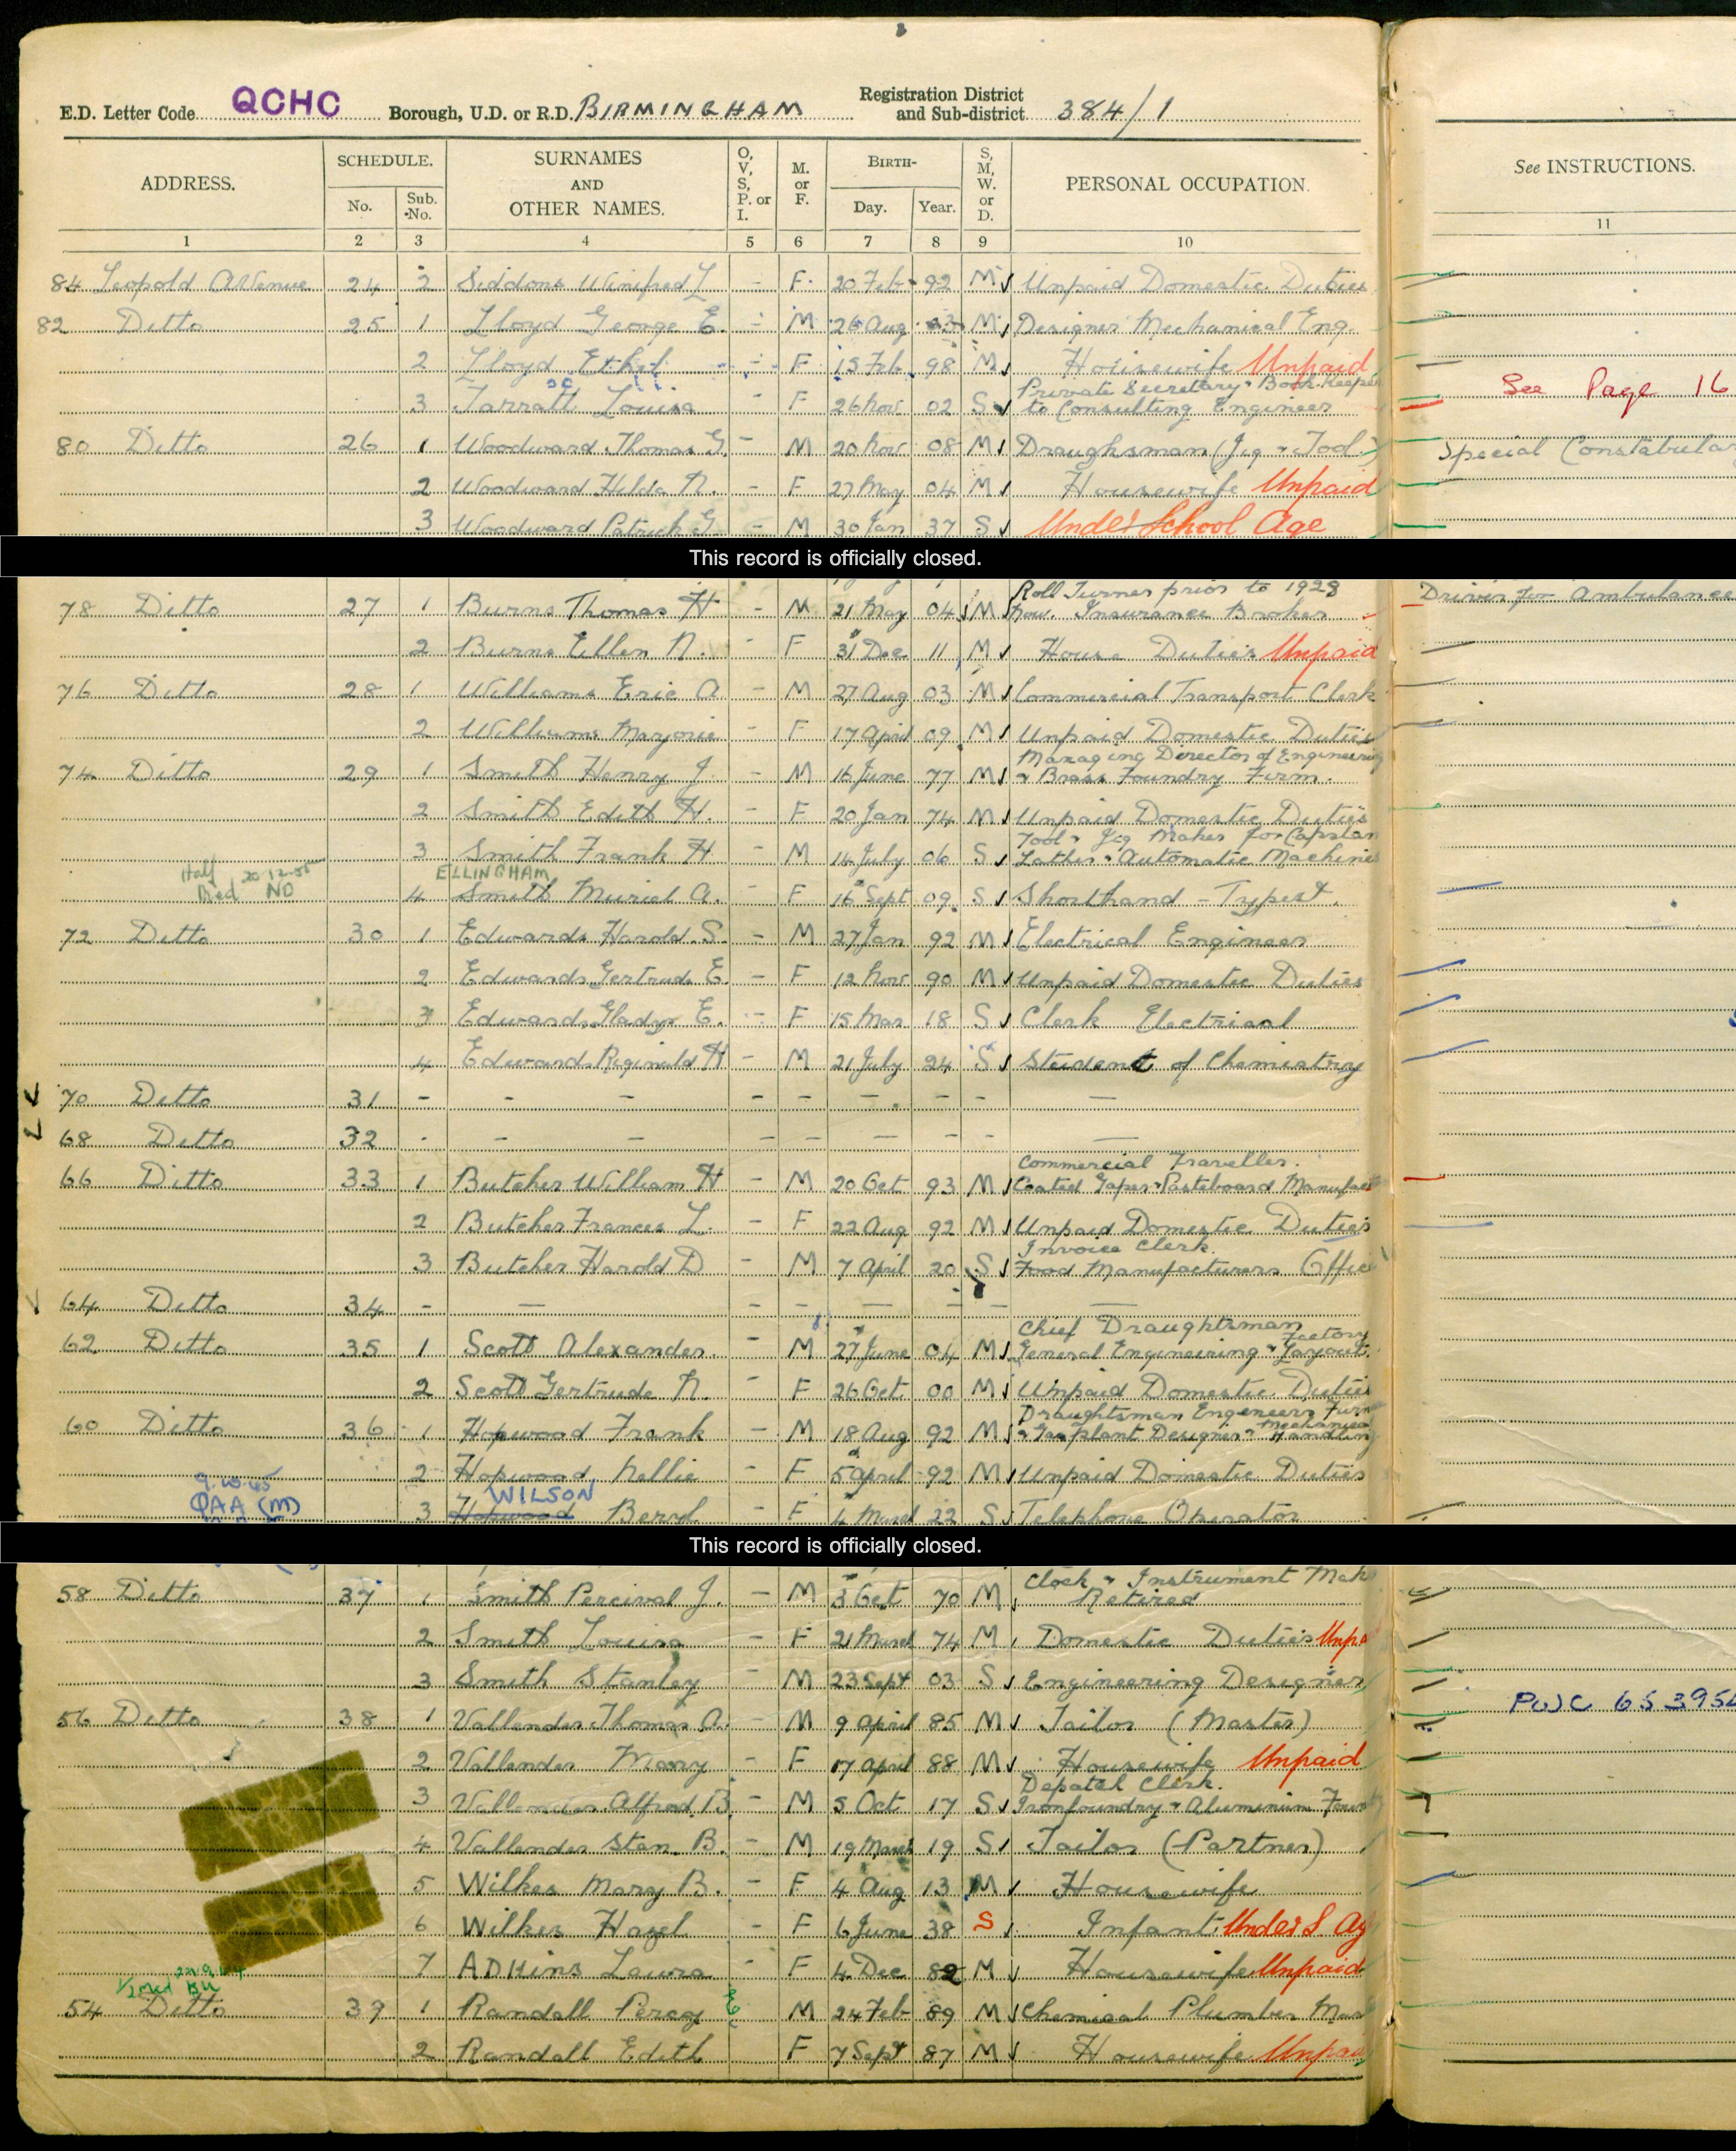 E.D. Letter Code QCHC Borough, U.D. or R.D. BIRMINGHAM Registration District and Sub-district 384/1
ADDRESS. SCHEDULE. No. Sub. No. SURNAMES AND OTHER NAMES. O, V, S, P. or I. M. or F. BIRTH- Day. Year. S, M, W. or D. PERSONAL OCCUPATION. See INSTRUCTIONS.
1 2 3 4 5 6 7 8 9 10 11
84 Leopold Avenue 24 2 Siddons Winifred L - F. 20 Feb 92 M Unpaid Domestic Duties
82 Ditto 25 1 Lloyd George E. - M 26 Aug M Designer Mechanical Eng.
2 Lloyd Ethel - F 15 Feb 98 M Housewife Unpaid
3 Jarratt Louisa - F 26 Nov 02 S Private Secretary & Book Keeper to Consulting Engineer See Page 16
80 Ditto 26 1 Woodward Thomas G. - M 20 Nov 08 M Draughsman (Jig & Tool) Special Constabular
2 Woodward Hilda N. - F 27 May 04 M Housewife Unpaid
3 Woodward Patrick G - M 30 Jan 37 S Under School Age
This record is officially closed.
78 Ditto 27 1 Burns Thomas H - M 21 May 04 M Roll Turner prior to 1928 now. Insurance Broker Driver for Ambulance
2 Burns Ellen N. - F 31 Dec 11 M House Duties Unpaid
76 Ditto 28 1 Williams Eric A - M 27 Aug 03 M Commercial Transport Clerk
2 Williams Marjorie - F 17 April 09 M Unpaid Domestic Duties
74 Ditto 29 1 Smith Henry J. - M 16 June 77 M Managing Director of Engineering & Brass Foundry Firm.
2 Smith Edith H. - F 20 Jan 74 M Unpaid Domestic Duties
3 Smith Frank H - M 14 July 06 S Tool & Jig Maker for Capstan Lathes & Automatic Machines
20-12-55 ND ELLINGHAM
4 Smith Muriel A. - F 16 Sept 09 S Shorthand - Typist.
72 Ditto 30 1 Edwards Harold. S. - M 27 Jan 92 M Electrical Engineer
2 Edwards Gertrude E. - F 12 Nov 90 M Unpaid Domestic Duties
3 Edwards Gladys E. - F 15 Mar 18 S Clerk Electrical
4 Edwards Reginald H - M 21 July 24 S Student of Chemistry
70 Ditto 31 - - - - - - - - -
68 Ditto 32 - - - - - - - - -
66 Ditto 33 1 Butcher William H - M 20 Oct 93 M Commercial Traveller. Coated Paper & Pasteboard Manufact
2 Butcher Frances L. - F 22 Aug 92 M Unpaid Domestic Duties
3 Butcher Harold D - M 7 April 20 S Invoice Clerk. Food Manufacturers Office
64 Ditto 34 - - - - - - - -
62 Ditto 35 1 Scott Alexander. - M 27 June 04 M Chief Draughtsman General Engineering & Factory Layout.
2 Scott Gertrude N. - F 26 Oct 00 M Unpaid Domestic Duties
60 Ditto 36 1 Hopwood Frank - M 18 Aug 92 M Draughtsman Engineers Furn & Gas plant Designer & Mechanical Handling
2 Hopwood Nellie - F 5 April 92 M Unpaid Domestic Duties
9.10.45 QAA (M) WILSON
3 Hopwood Beryl - F 4 March 22 S Telephone Operator
This record is officially closed.
58 Ditto 37 1 Smith Percival J. - M 3 Oct 70 M Clock & Instrument Mak Retired
2 Smith Louisa - F 21 March 74 M Domestic Duties Unpa
3 Smith Stanley - M 23 Sept 03 S Engineering Designer
56 Ditto 38 1 Vallender Thomas A. - M 9 April 85 M Tailor (Master) PWJC 653954
2 Vallender Mary - F 17 April 88 M Housewife Unpaid
3 Vallender Alfred. B. - M 5 Oct 17 S Depatch Clerk. Ironfoundry & Aluminium Foun
4 Vallender Stan. B. - M 19 March 19 S Tailor (Partner)
5 Wilkes Mary B. - F 4 Aug 13 M Housewife
6 Wilkes Hazel - F 6 June 38 S Infant. Under S. Ag
7 ADKins Laura - F 4 Dec 82 M Housewife Unpaid
54 Ditto 39 1 Randall Percy E M 24 Feb 89 M Chemical Plumber Mas
2 Randall Edith F 7 Sept 87 M Housewife Unpai